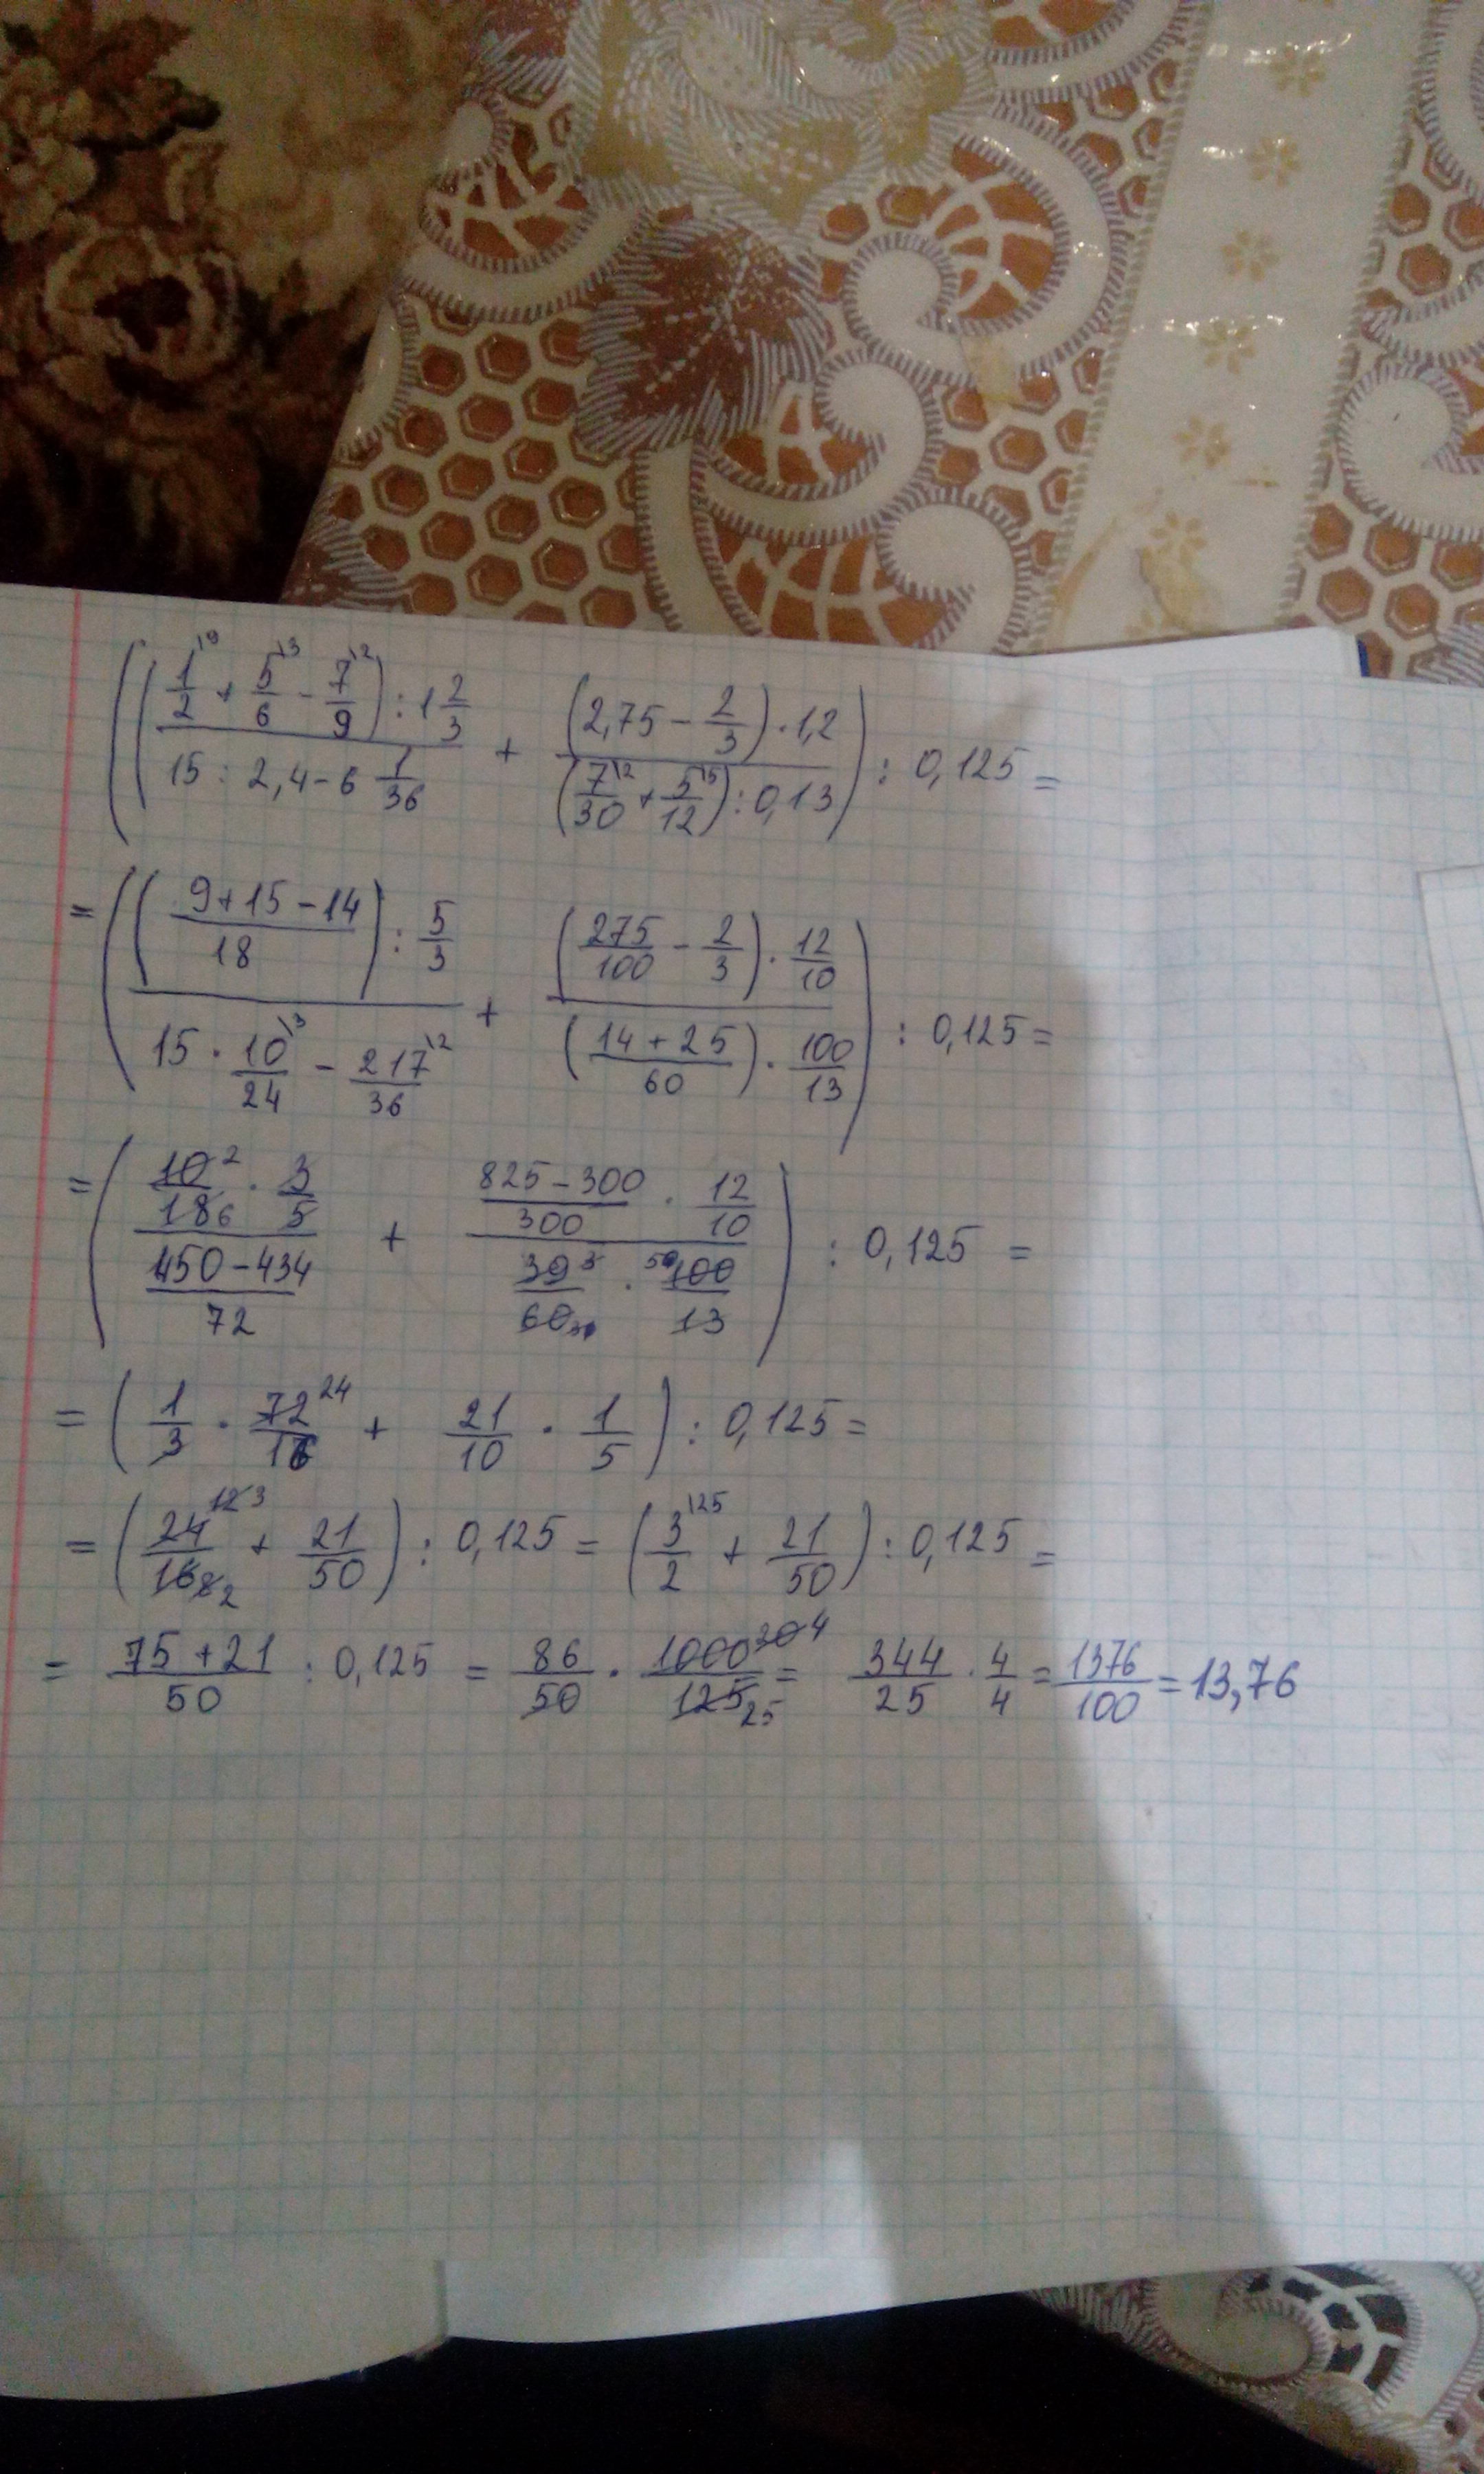 ((1/2\9 + 5/6\3 − 7/9\2) : 1 2/3)/(15 : 2,4 − 6 1/36) + ((2,75 − 2/3) · 1,2)/((7/30\2 + 5/12\5) : 0,13)) : 0,125 =
= (((9+15−14)/18) : 5/3)/(15 · 10/24\3 − 217/36\2) + ((275/100 − 2/3) · 12/10)/(((14+25)/60) · 100/13)) : 0,125 =
= ((10 2/18 6 · 3/5)/((450−434)/72) + ((825−300)/300 · 12/10)/(39 3/60 30 · 50 100/13)) : 0,125 =
= (1/3 · 72 24/16 + 21/10 · 1/5) : 0,125 =
= (24 12 3/16 8 2 + 21/50) : 0,125 = (3/2\25 + 21/50) : 0,125 =
= (75+21)/50 : 0,125 = 86/50 · 1000 20 4/125 25 = 344/25 · 4/4 = 1376/100 = 13,76